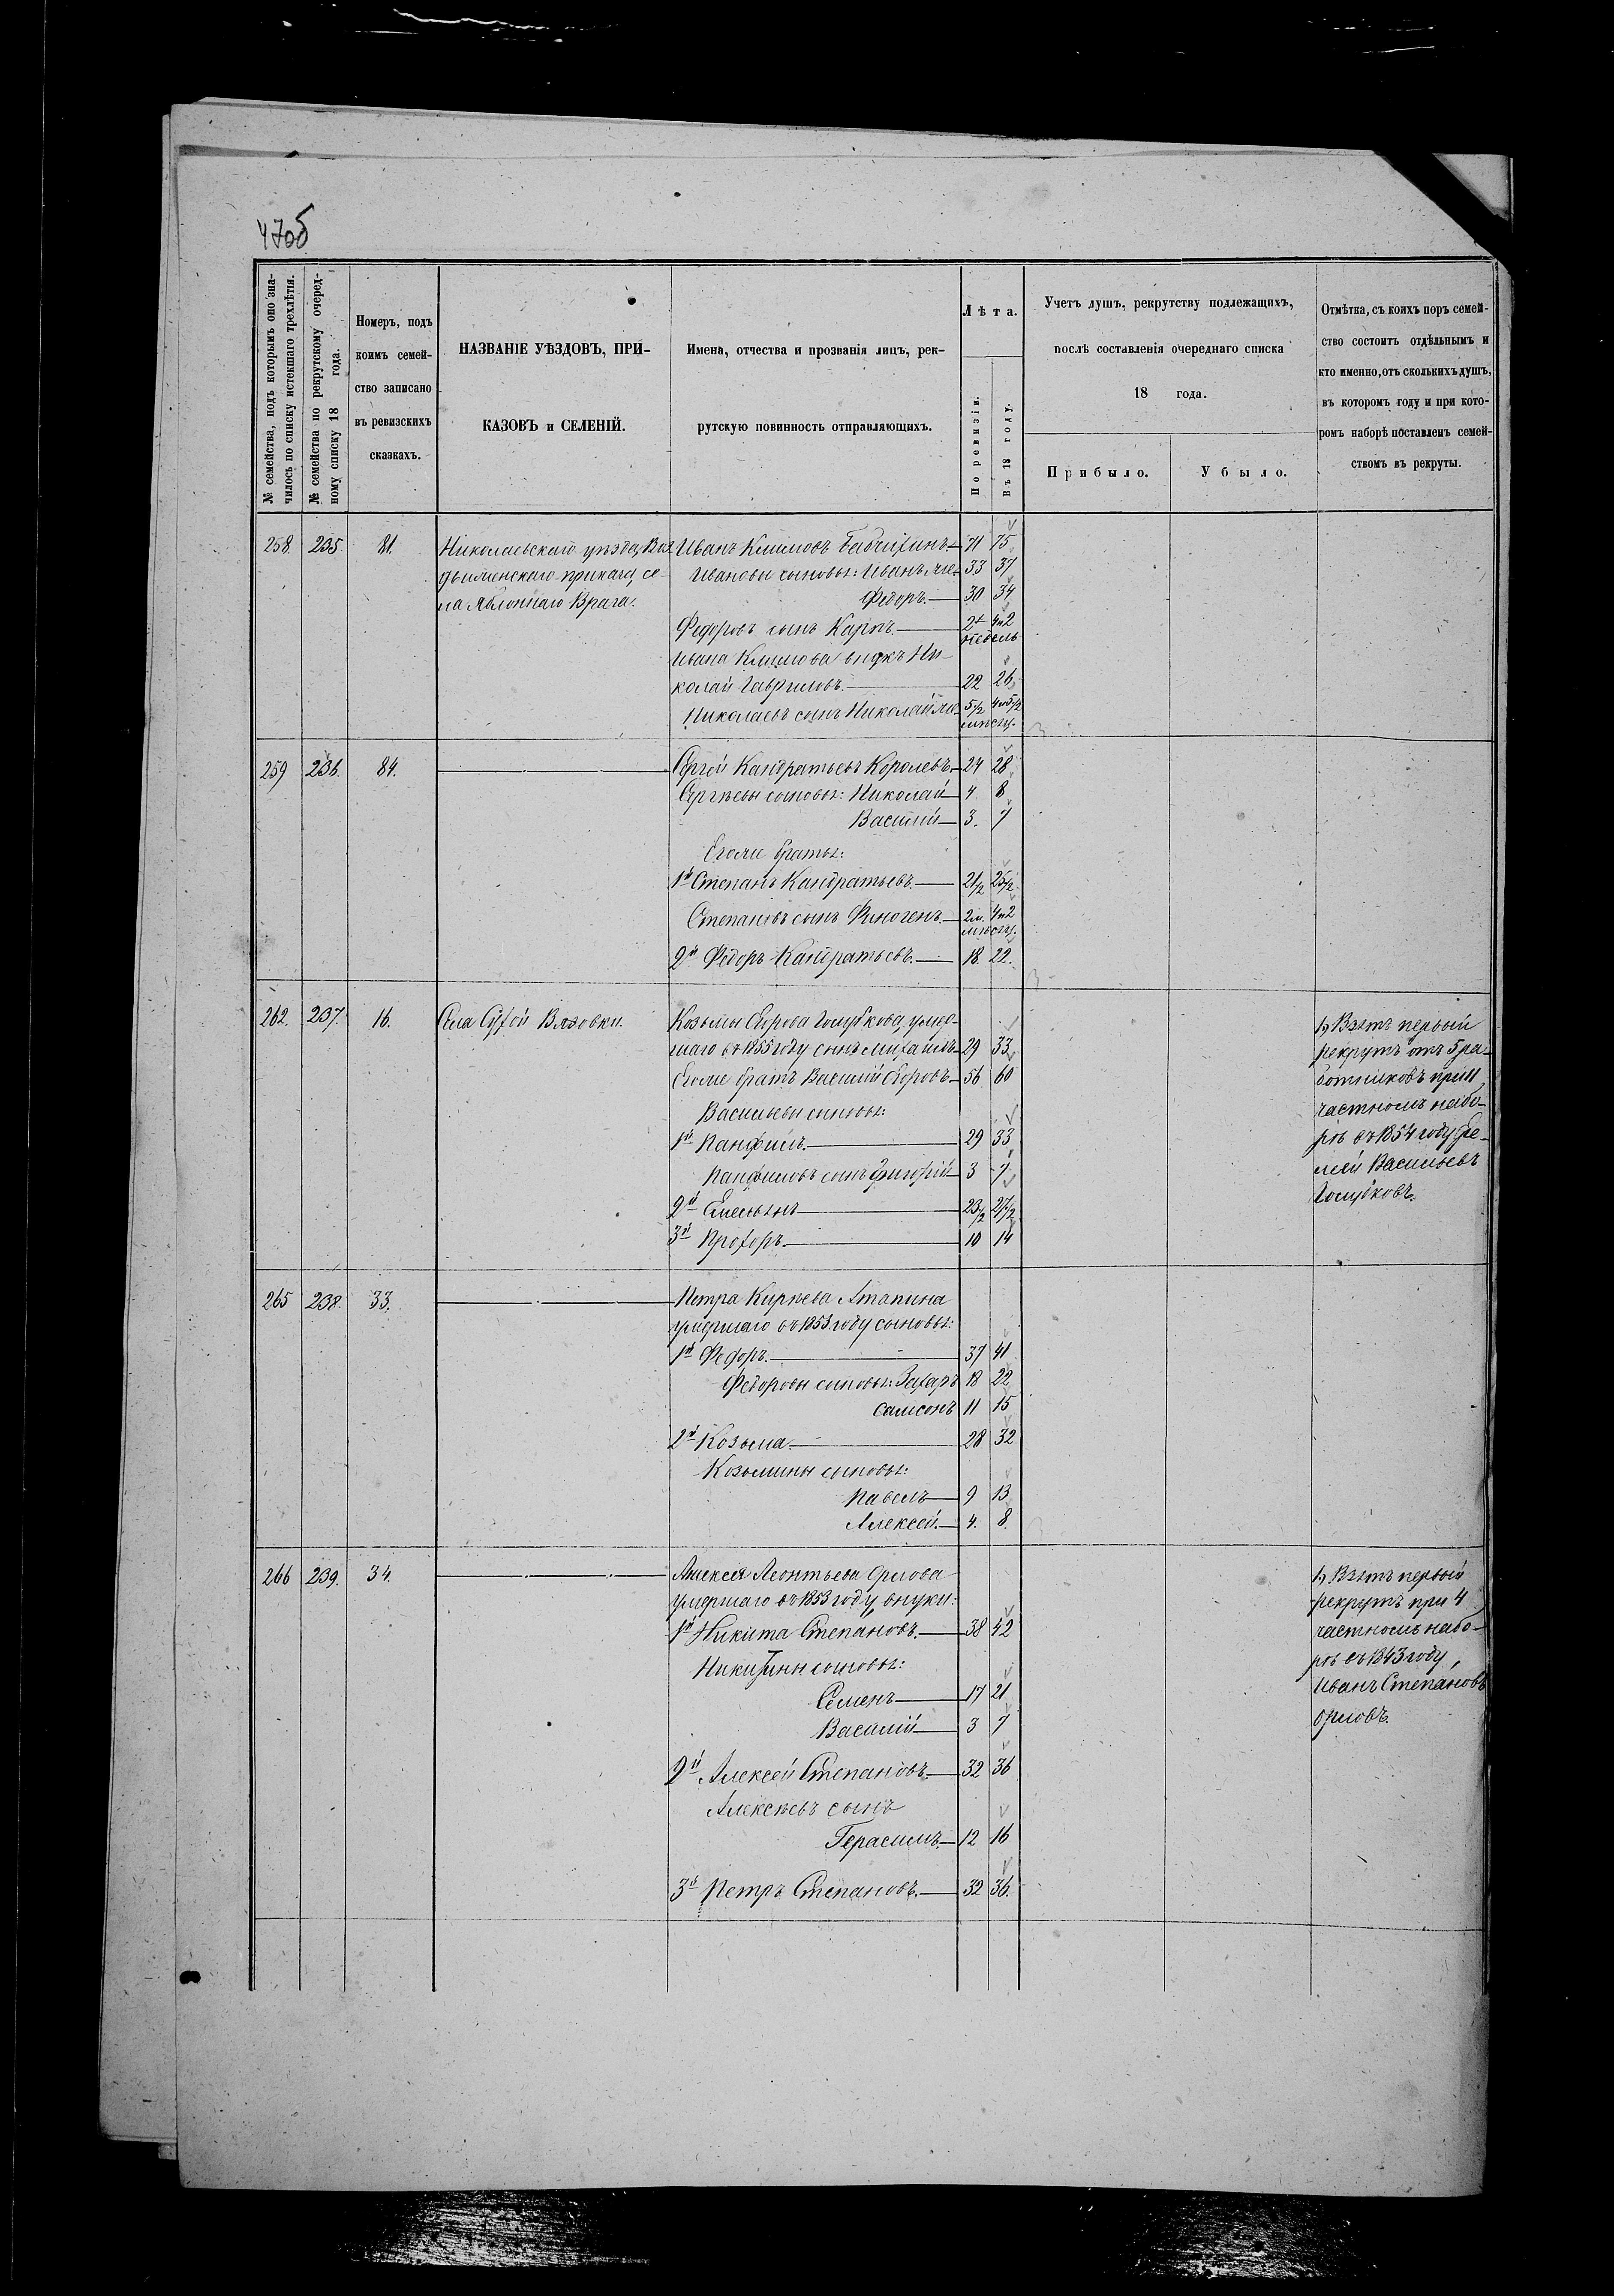 47об
№ семейства, подъ которымъ оно зна-
чилось по списку истекшаго трехлѣтія.
№ семейства по рекрутскому очеред-
ному списку 18 года.
Номеръ, подъ
коимъ семей-
ство записано
въ ревизскихъ
сказкахъ.
НАЗВАНІЕ УѢЗДОВЪ, ПРИ-
КАЗОВЪ и СЕЛЕНІЙ.
Имена, отчества и прозванія лицъ, рек-
рутскую повинность отправляющихъ.
Лѣта.
По ревизіи.
Въ 18 году.
Учетъ душъ, рекрутству подлежащихъ,
послѣ составленія очереднаго списка
18 года.
Прибыло.
Убыло.
Отмѣтка, съ коихъ поръ семей-
ство состоитъ отдѣльнымъ и
кто именно, отъ сколькихъ душъ,
въ которомъ году и при кото-
ромъ наборѣ поставленъ семей-
ствомъ въ рекруты.
258. 235. 81. Николаевскаго уѣзда, Воз- Иванъ Климовъ 71 75
движенскаго приказа, се- Ивановы сыновья: Иванъ 33 37
ла Яблоннаго Врага. Федоръ. 30 34
Федоровъ сынъ Карпъ. 2 4 и 2
недѣль
Ивана Климова внукъ Ни-
колай Гавриловъ. 22 26
Николаевъ сынъ Николай 5/2 4 и 5/2
мѣсяц.
259 236. 84. Сергѣй Кандратьевъ Королевъ 24 28
Сергѣевы сыновья: Николай 4 8
Василий 3. 7
Его же братья:
1й Степанъ Кандратьевъ. 21/2 25/2
Степановъ сынъ Финогенъ. 2м. 4 и 2
мѣсяц.
2й Федоръ Кандратьевъ. 18. 22.
262. 237. 16. Села Сухой Вязовки. Козьмы Егорова Голубкова, умер-
шаго въ 1855 году сынъ Михаилъ 29 33
Его же братъ Василий Егоровъ 56 60
Васильевы сыновья:
1й Панфилъ. 29 33
Панфиловъ сынъ Григорий 3 7
2й Емельянъ 23/2 27/2
3й Прохоръ. 10 14
1, Взятъ первый
рекрутъ отъ 5 ра-
ботниковъ при 11
частномъ набо-
рѣ въ 1854 году
Васильевъ
Голубковъ.
265 238. 33. Петра Кирѣева Атапина
умершаго въ 1853 году сыновья:
1й Федоръ. 37 41
Федоровы сыновья: Захаръ 18 22
Самсонъ 11 15
2й Козьма 28 32
Козьмины сыновья:
Павелъ 9 13
Алексей. 4. 8.
266 239. 34. Алексея Леонтьева Орлова
умершаго въ 1853 году, внуки:
1й Никита Степановъ. 38 42
Никитины сыновья:
Семенъ 17 21
Василий 3 7
2й Алексей Степановъ. 32 36
Алексѣевъ сынъ
Герасимъ. 12 16
3й Петръ Степановъ. 32 36.
1, Взятъ первый
рекрутъ при 4
частномъ набо-
рѣ въ 1843 году,
Иванъ Степановъ
Орловъ.